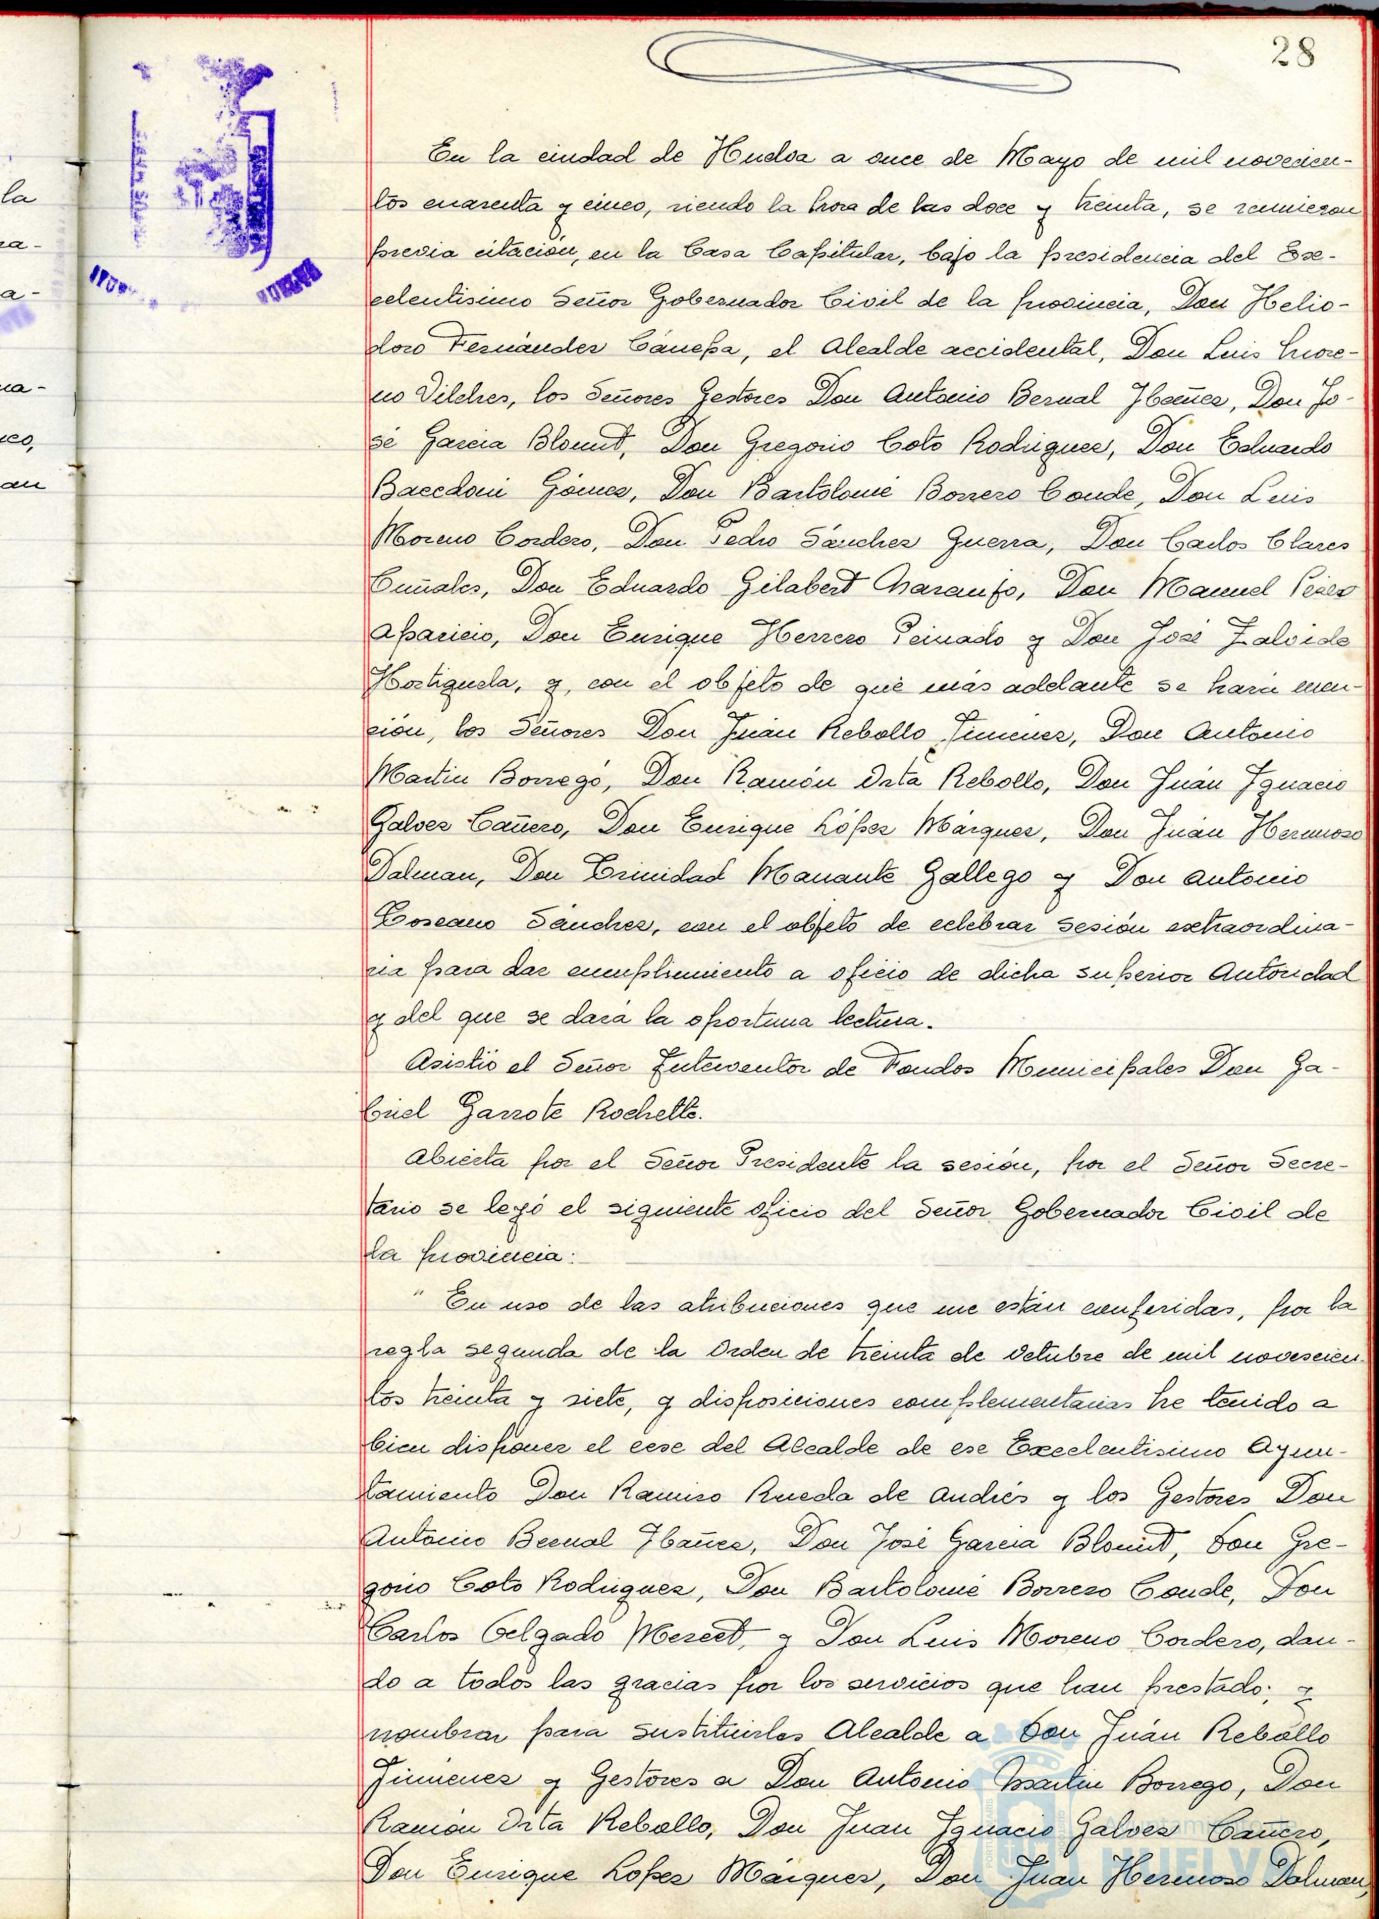 28
En la ciudad de Huelva a once de Mayo de mil novecien-
tos cuarenta y cinco, siendo la hora de las doce y treinta, se reunieron
previa citación, en la Casa Capitular, bajo la presidencia del Exc-
celentisimo Señor Gobernador Civil de la provincia, Don Helio-
doro Fernández Cánepa, el Alcalde accidental, Don Luis More-
no Vilches, los Señores Gestores Don Antonio Bernal Ibañez, Don Jo-
sé Garcia Blount, Don Gregorio Coto Rodriguez, Don Eduardo
Baccdoni Gómez, Don Bartolomé Borrero Conde, Don Luis
Moreno Cordero, Don Pedro Sánchez Guerra, Don Carlos Clares
Cuñales, Don Eduardo Gilabert Naranjo, Don Manuel Pérez
Aparicio, Don Enrique Herrero Peinado y Don José Zalvide
Hortiguela, y, con el objeto de que más adelante se hará men-
ción, los Señores Don Juán Rebollo Jimenez, Don Antonio
Martin Borregó, Don Ramón Orta Rebollo, Don Juán Ignacio
Galvez Cañero, Don Enrique López Márquez, Don Juán Hermoso
Dalman, Don Trinidad Manante Gallego y Don Antonio
Toscano Sánchez, con el objeto de celebrar sesión extraordina-
ria para dar cumplimiento a oficio de dicha superior Autoridad
y del que se dará la oportuna lectura.
Asistió el Señor Interventor de Fondos Municipales Don Ga-
briel Garrote Rochette.
Abierta por el Señor Presidente la sesión, por el Señor Secre-
tario se leyó el siguiente oficio del Señor Gobernador Civil de
la provincia:
" En uso de las atribuciones que me están conferidas, por la
regla segunda de la Orden de treinta de Octubre de mil novescien-
tos treinta y siete, y disposiciones complementarias he tenido a
bien disponer el cese del Alcalde de ese Excelentisimo Ayun-
tamiento Don Ramiro Rueda de Andrés y los Gestores Don
Antonio Bernal Ibañez, Don José Garcia Blount, Don Gre-
gorio Coto Rodriguez, Don Bartolomé Borrero Conde, Don
Carlos Delgado Mercet, y Don Luis Moreno Cordero, dan-
do a todos las gracias por los servicios que han prestado; y
nombrar para sustituirles Alcalde a Don Juán Rebollo
Jimenez y Gestores a Don Antonio Martin Borrego, Don
Ramón Orta Rebollo, Don Juan Ignacio Galvez Cañero,
Don Enrique Lopez Márquez, Don Juan Hermoso Dalman,
HUELVA
la
an